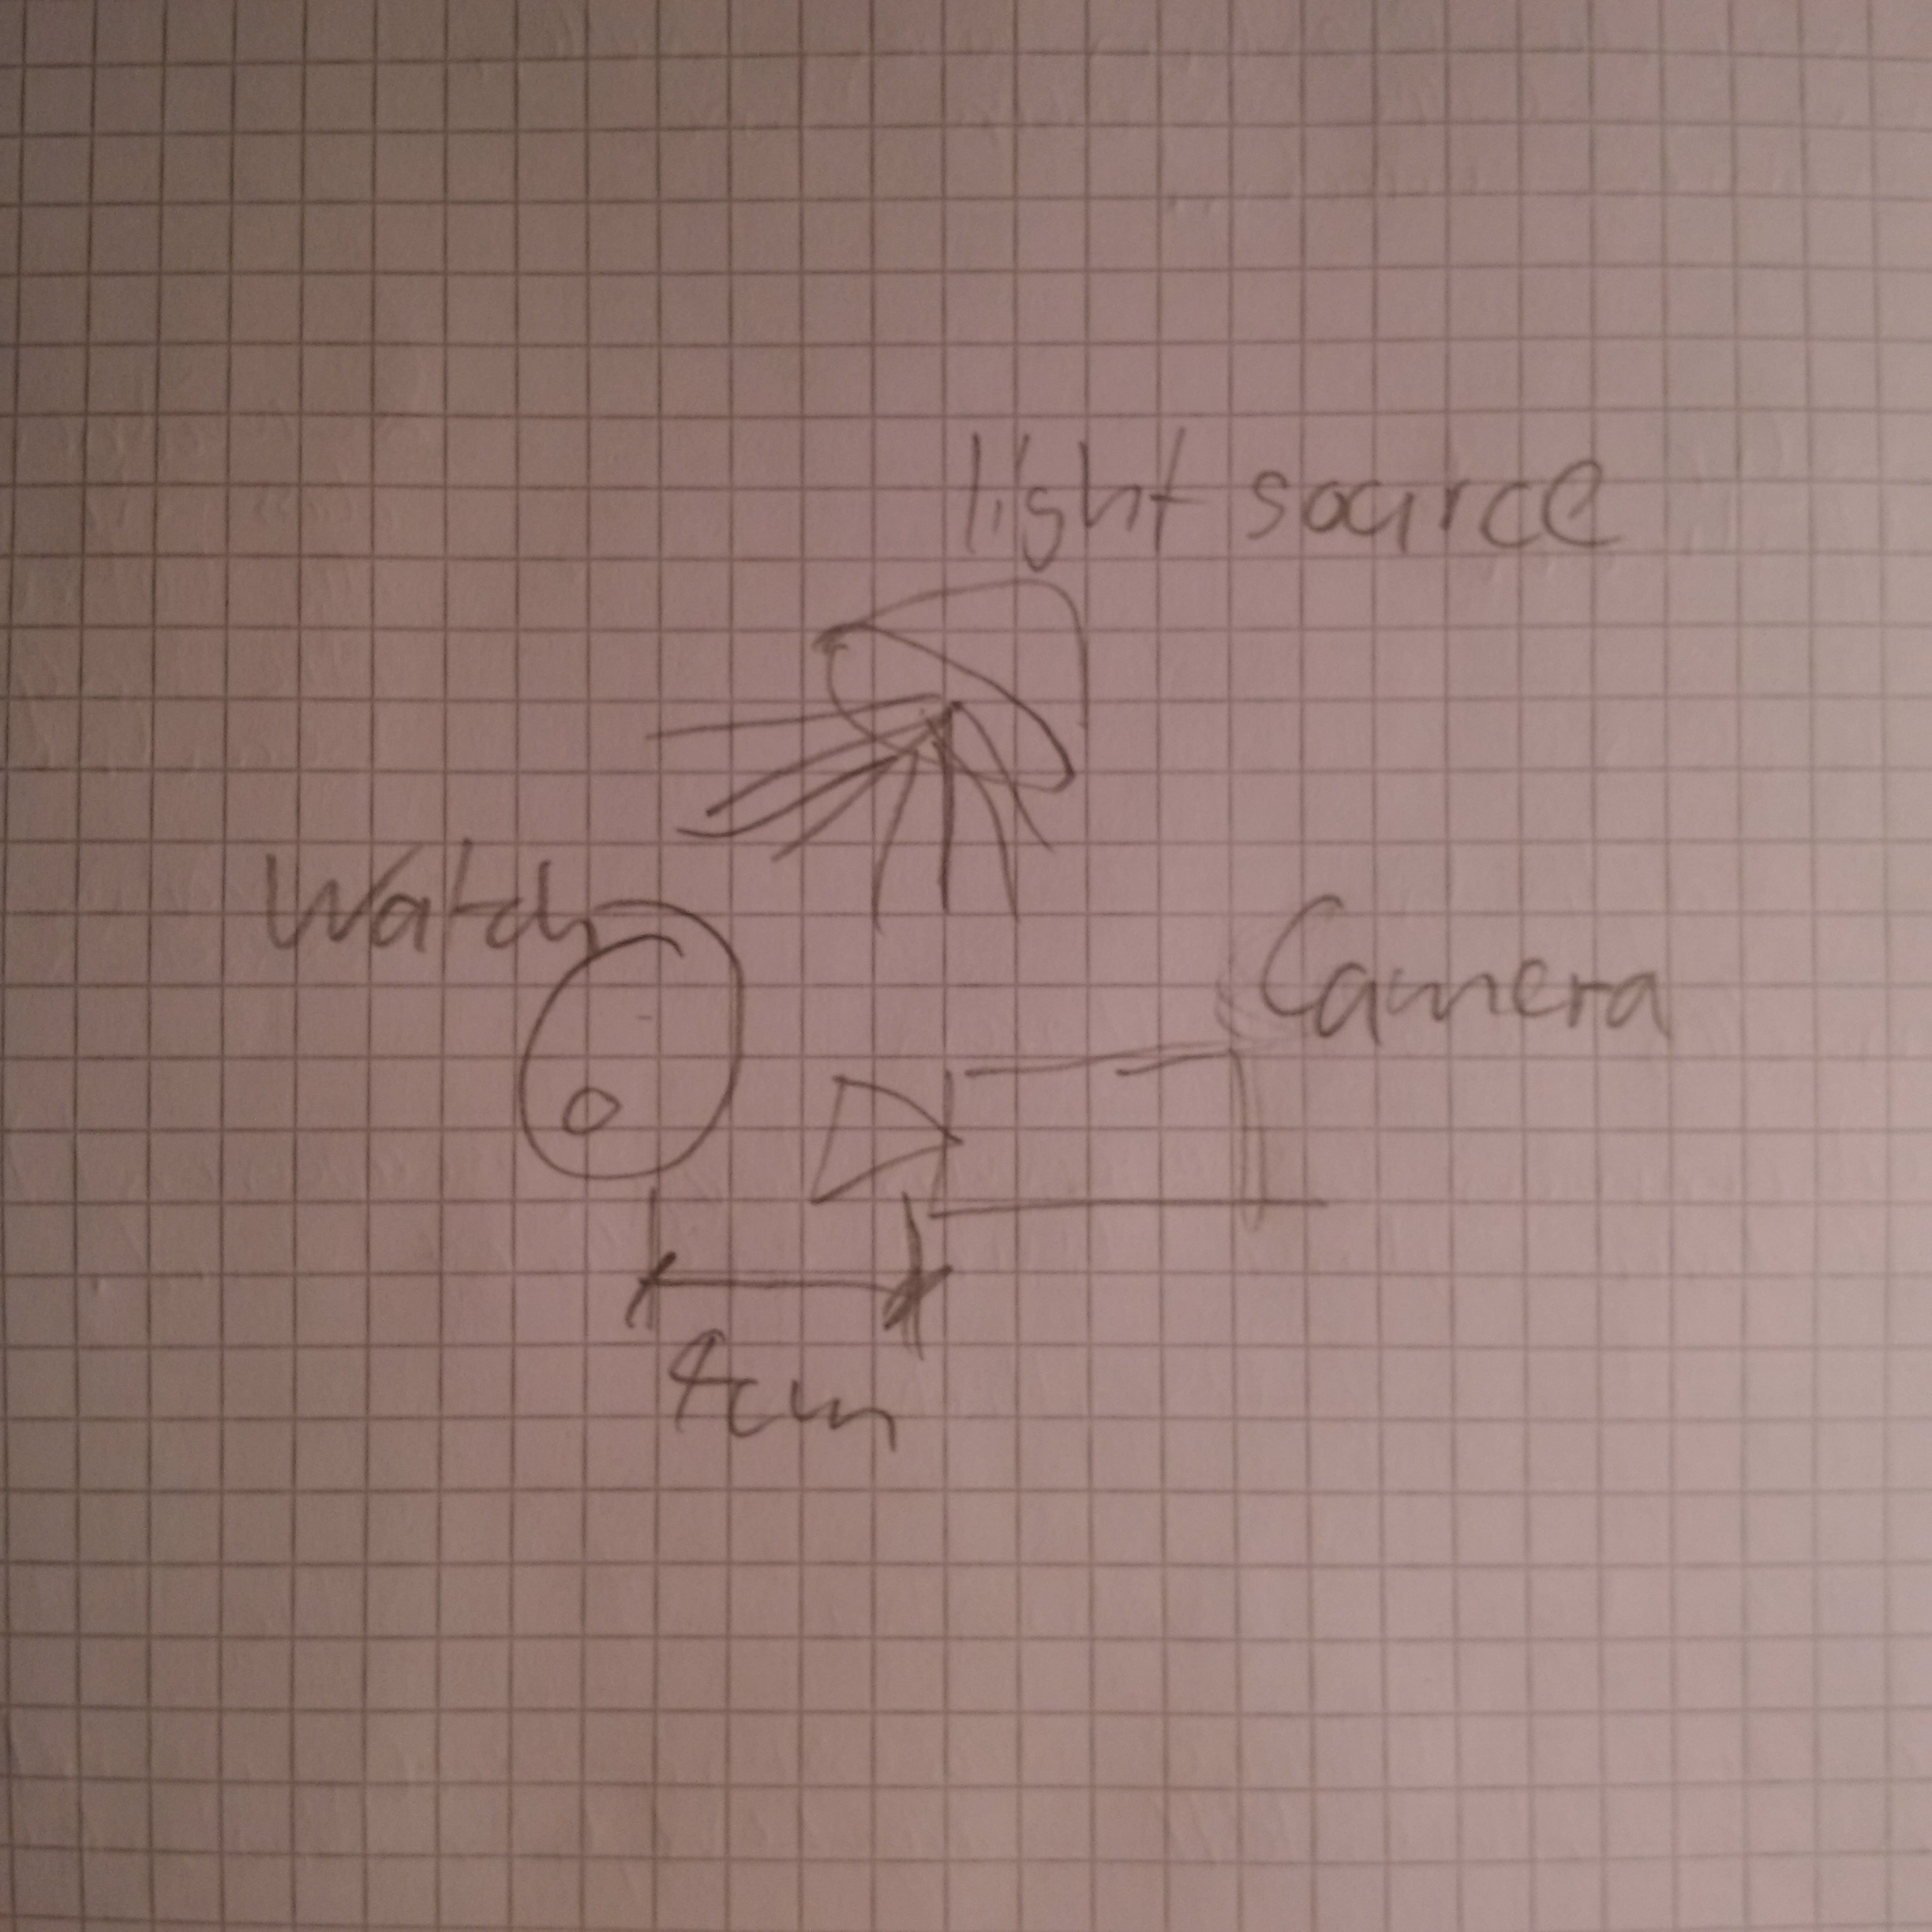 light source
Watch
Camera
4cm